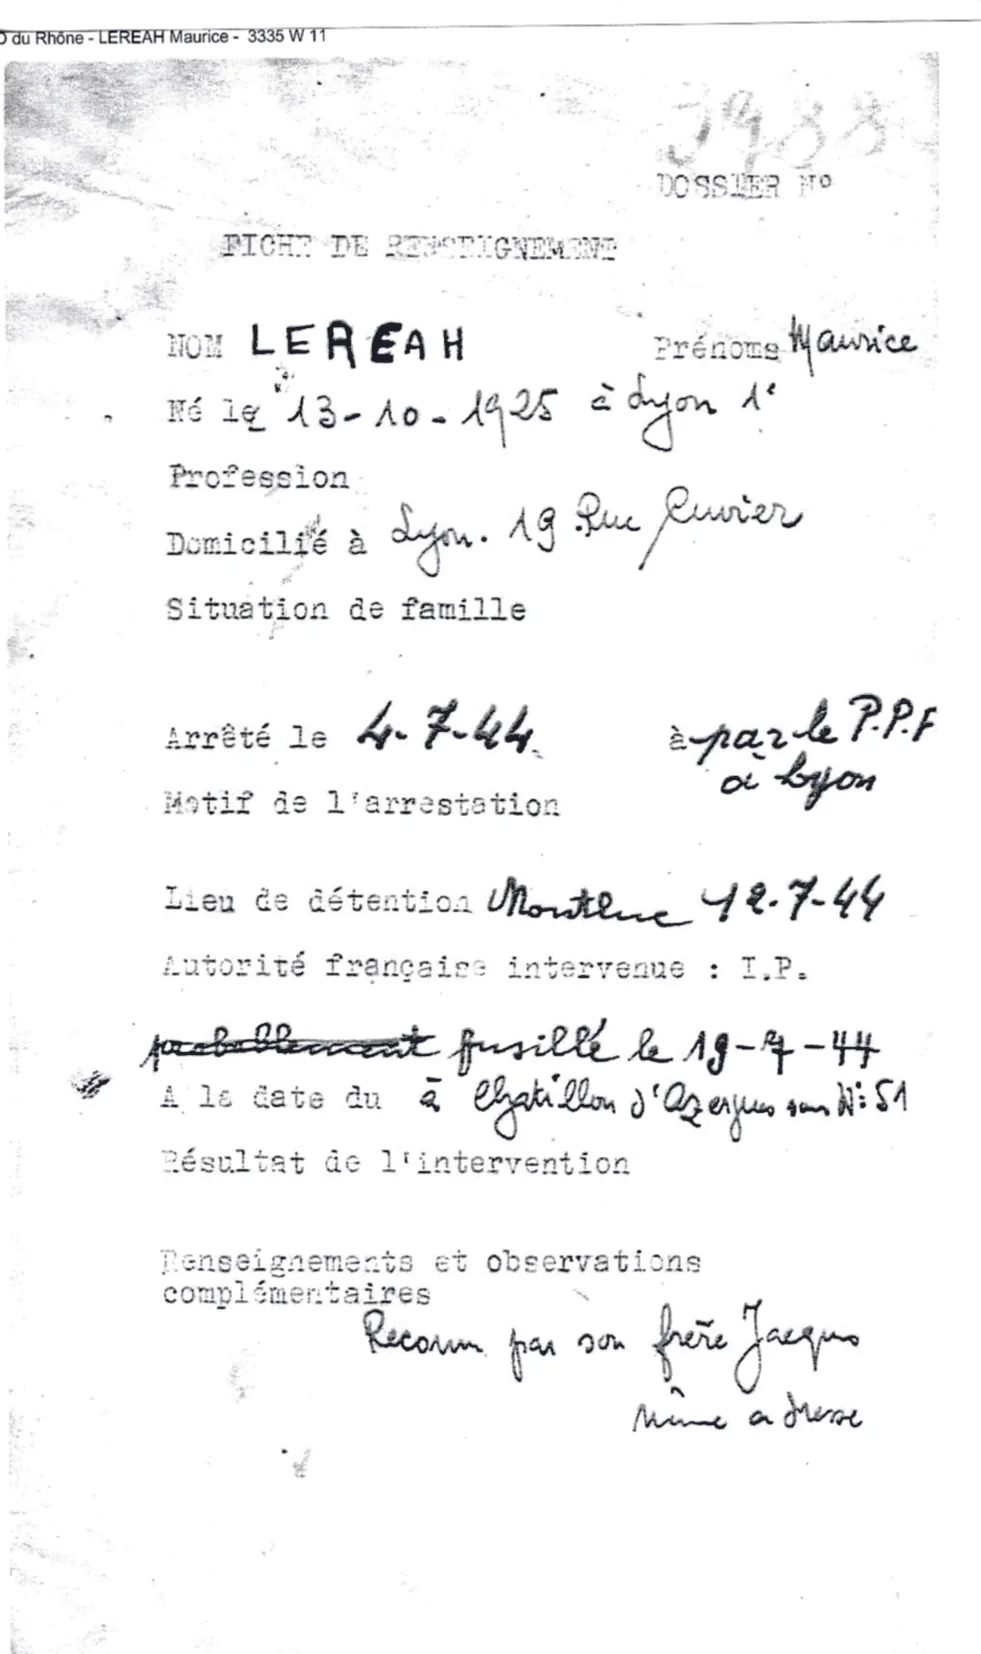 D du Rhône - LEREAH Maurice - 3335 W 11
3988
DOSSIER N°
FICHE DE RENSEIGNEMENT
NOM LEREAH Prénoms Maurice
Né le 13-10-1925 à Lyon 1e
Profession
Domicilié à Lyon. 19 Rue Cuvier
Situation de famille
Arrêté le 4-7-44 à par le P.P.F
à Lyon
Motif de l'arrestation
Lieu de détention Montluc 12-7-44
Autorité française intervenue : I.P.
probablement fusillé le 19-7-44
A la date du à Chatillon d'Azergues sous N: 51
Résultat de l'intervention
Renseignements et observations
complémentaires
Reconnu par son frère Jacques
même adresse